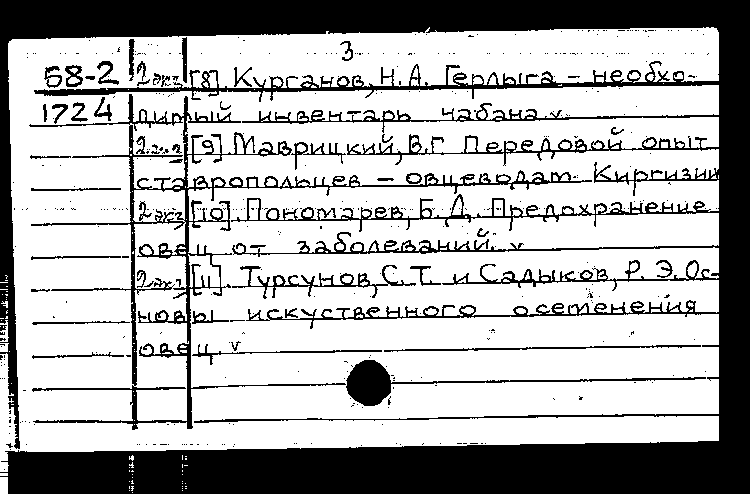 3
68-2 2 экз [8]. Курганов, Н.А. Герлыга – необхо-
1724 димый инвентарь чабана. v
2 экз [9]. Маврицкий, В.Г. Передовой опыт
ставропольцев – овцеводам Киргизии
2 экз [10]. Пономарев, Б.Д. Предохранение
овец от заболеваний. v
2 экз [11]. Турсунов, С.Т. и Садыков, Р.Э. Ос-
новы искуственного осеменения
овец v